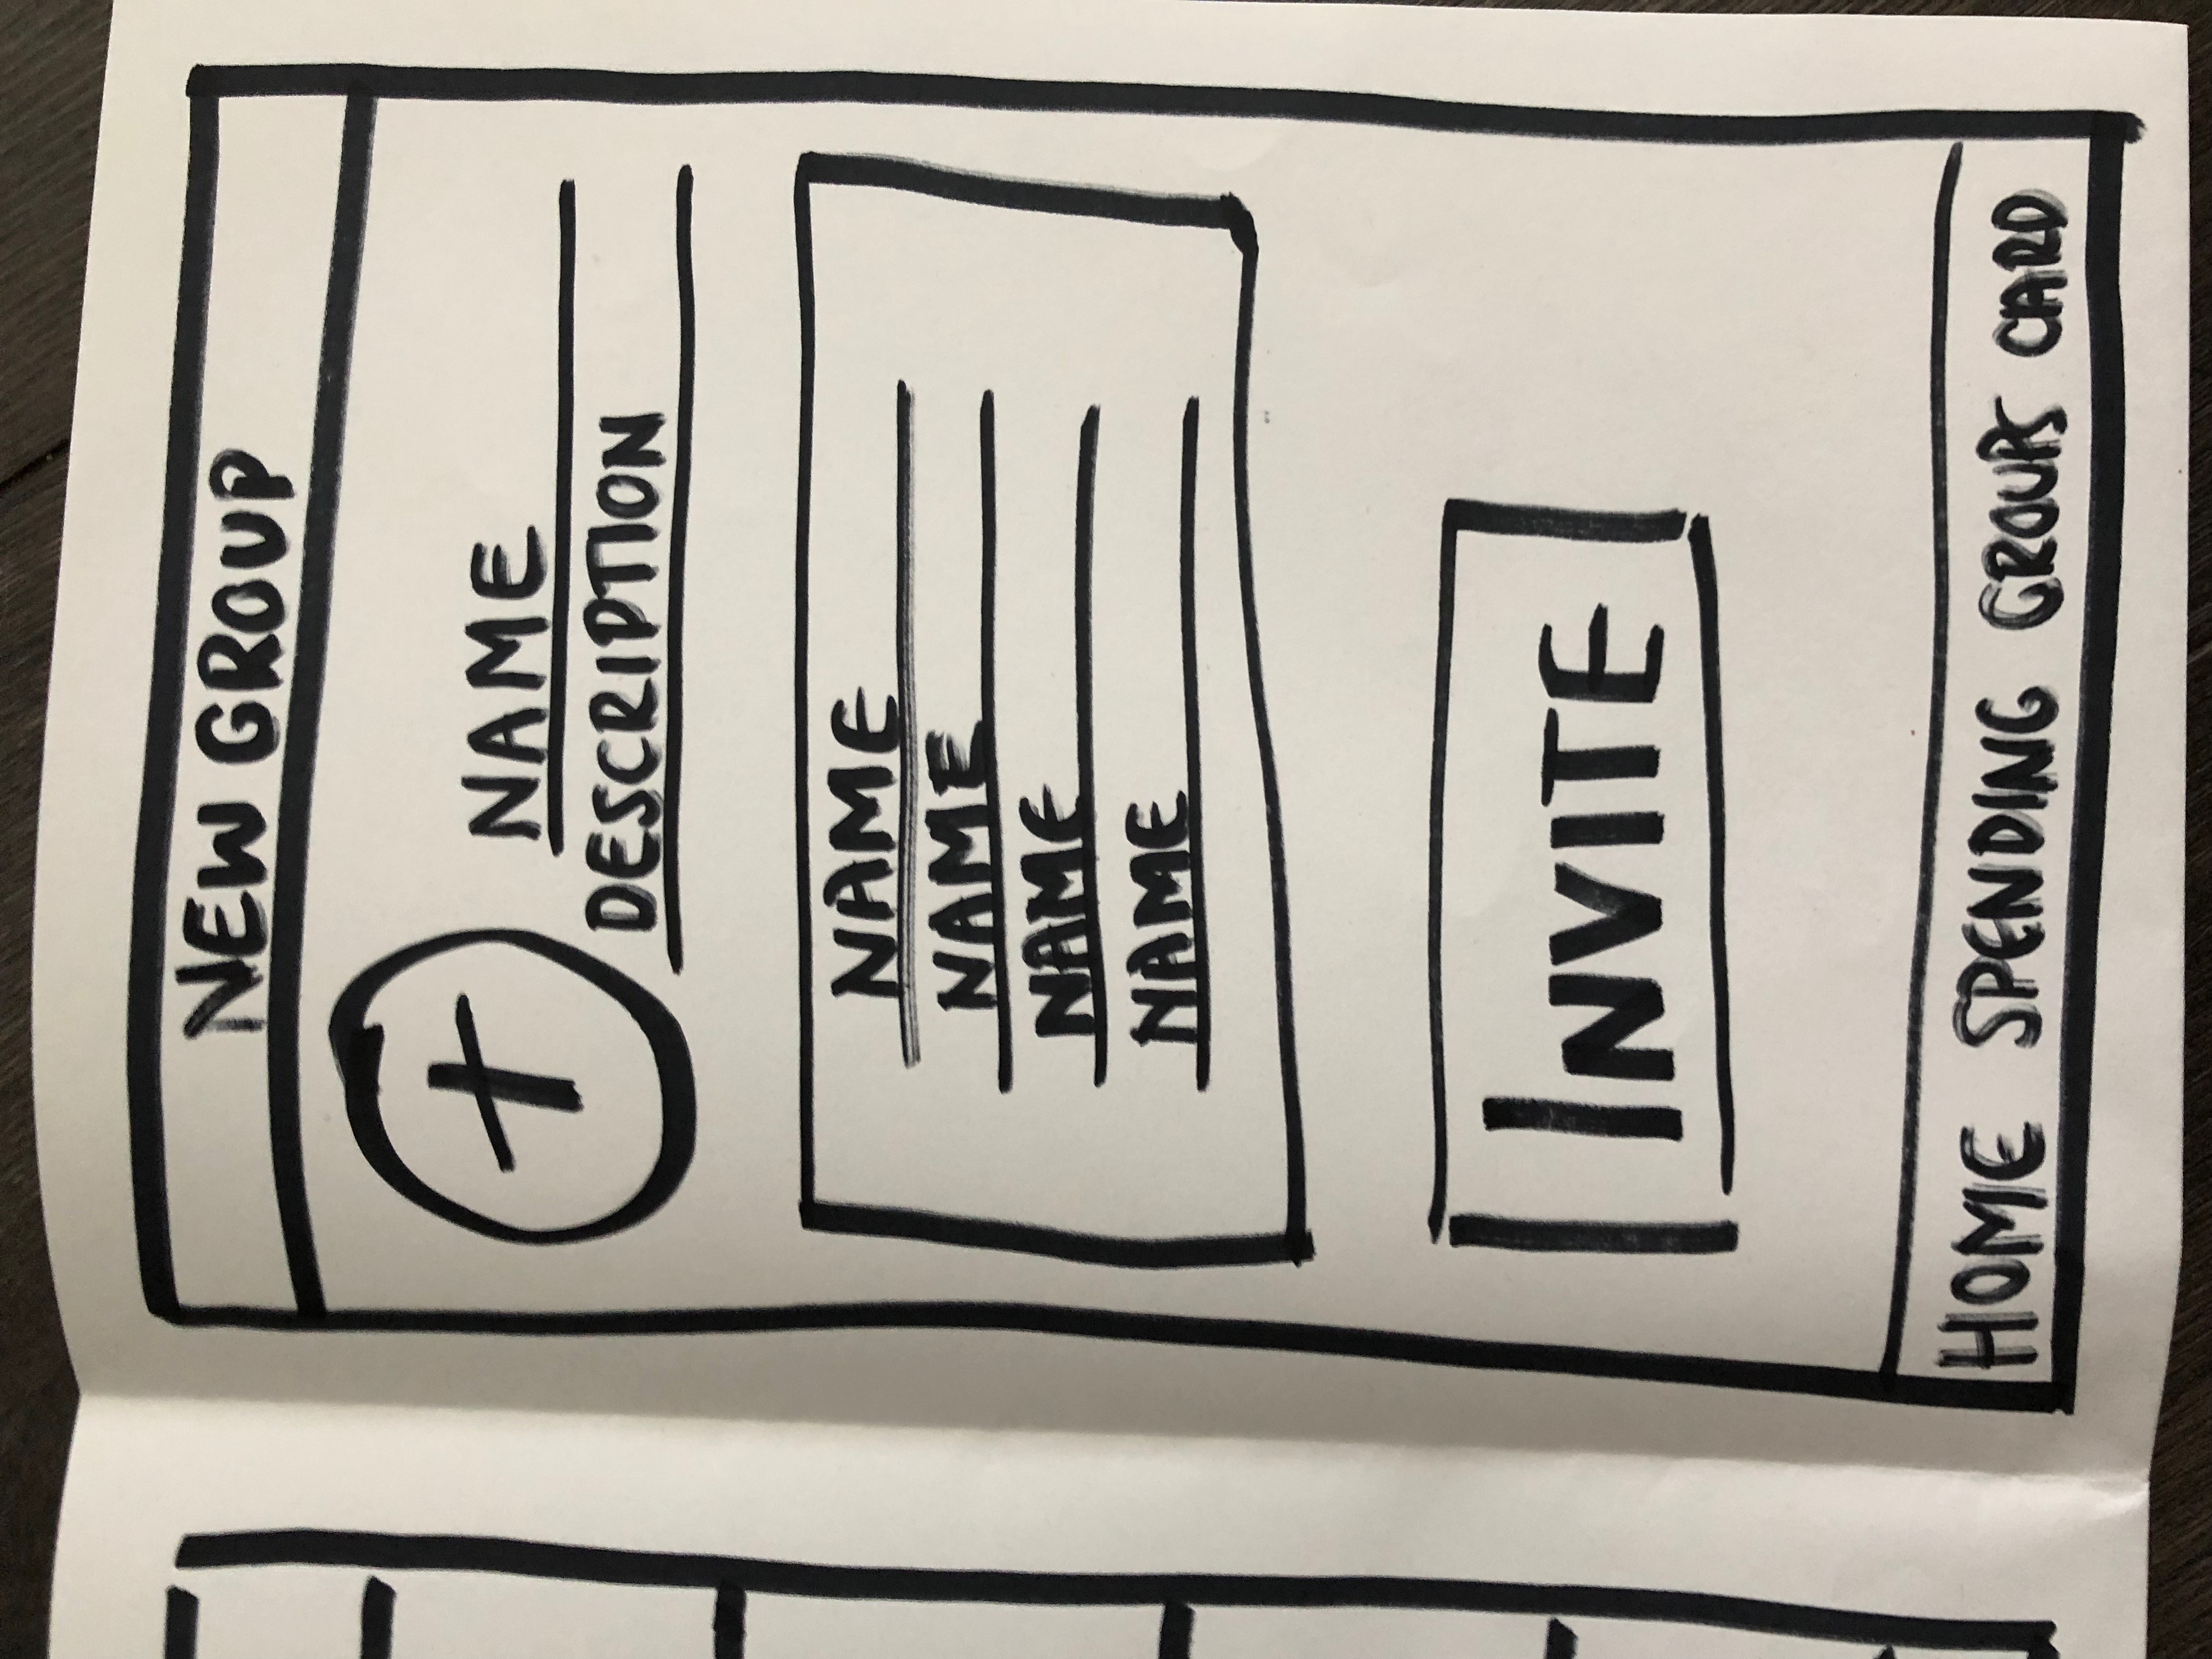 NEW GROUP
NAME
DESCRIPTION
NAME
NAME
NAME
NAME
INVITE
HOME SPENDING GROUPS CARD